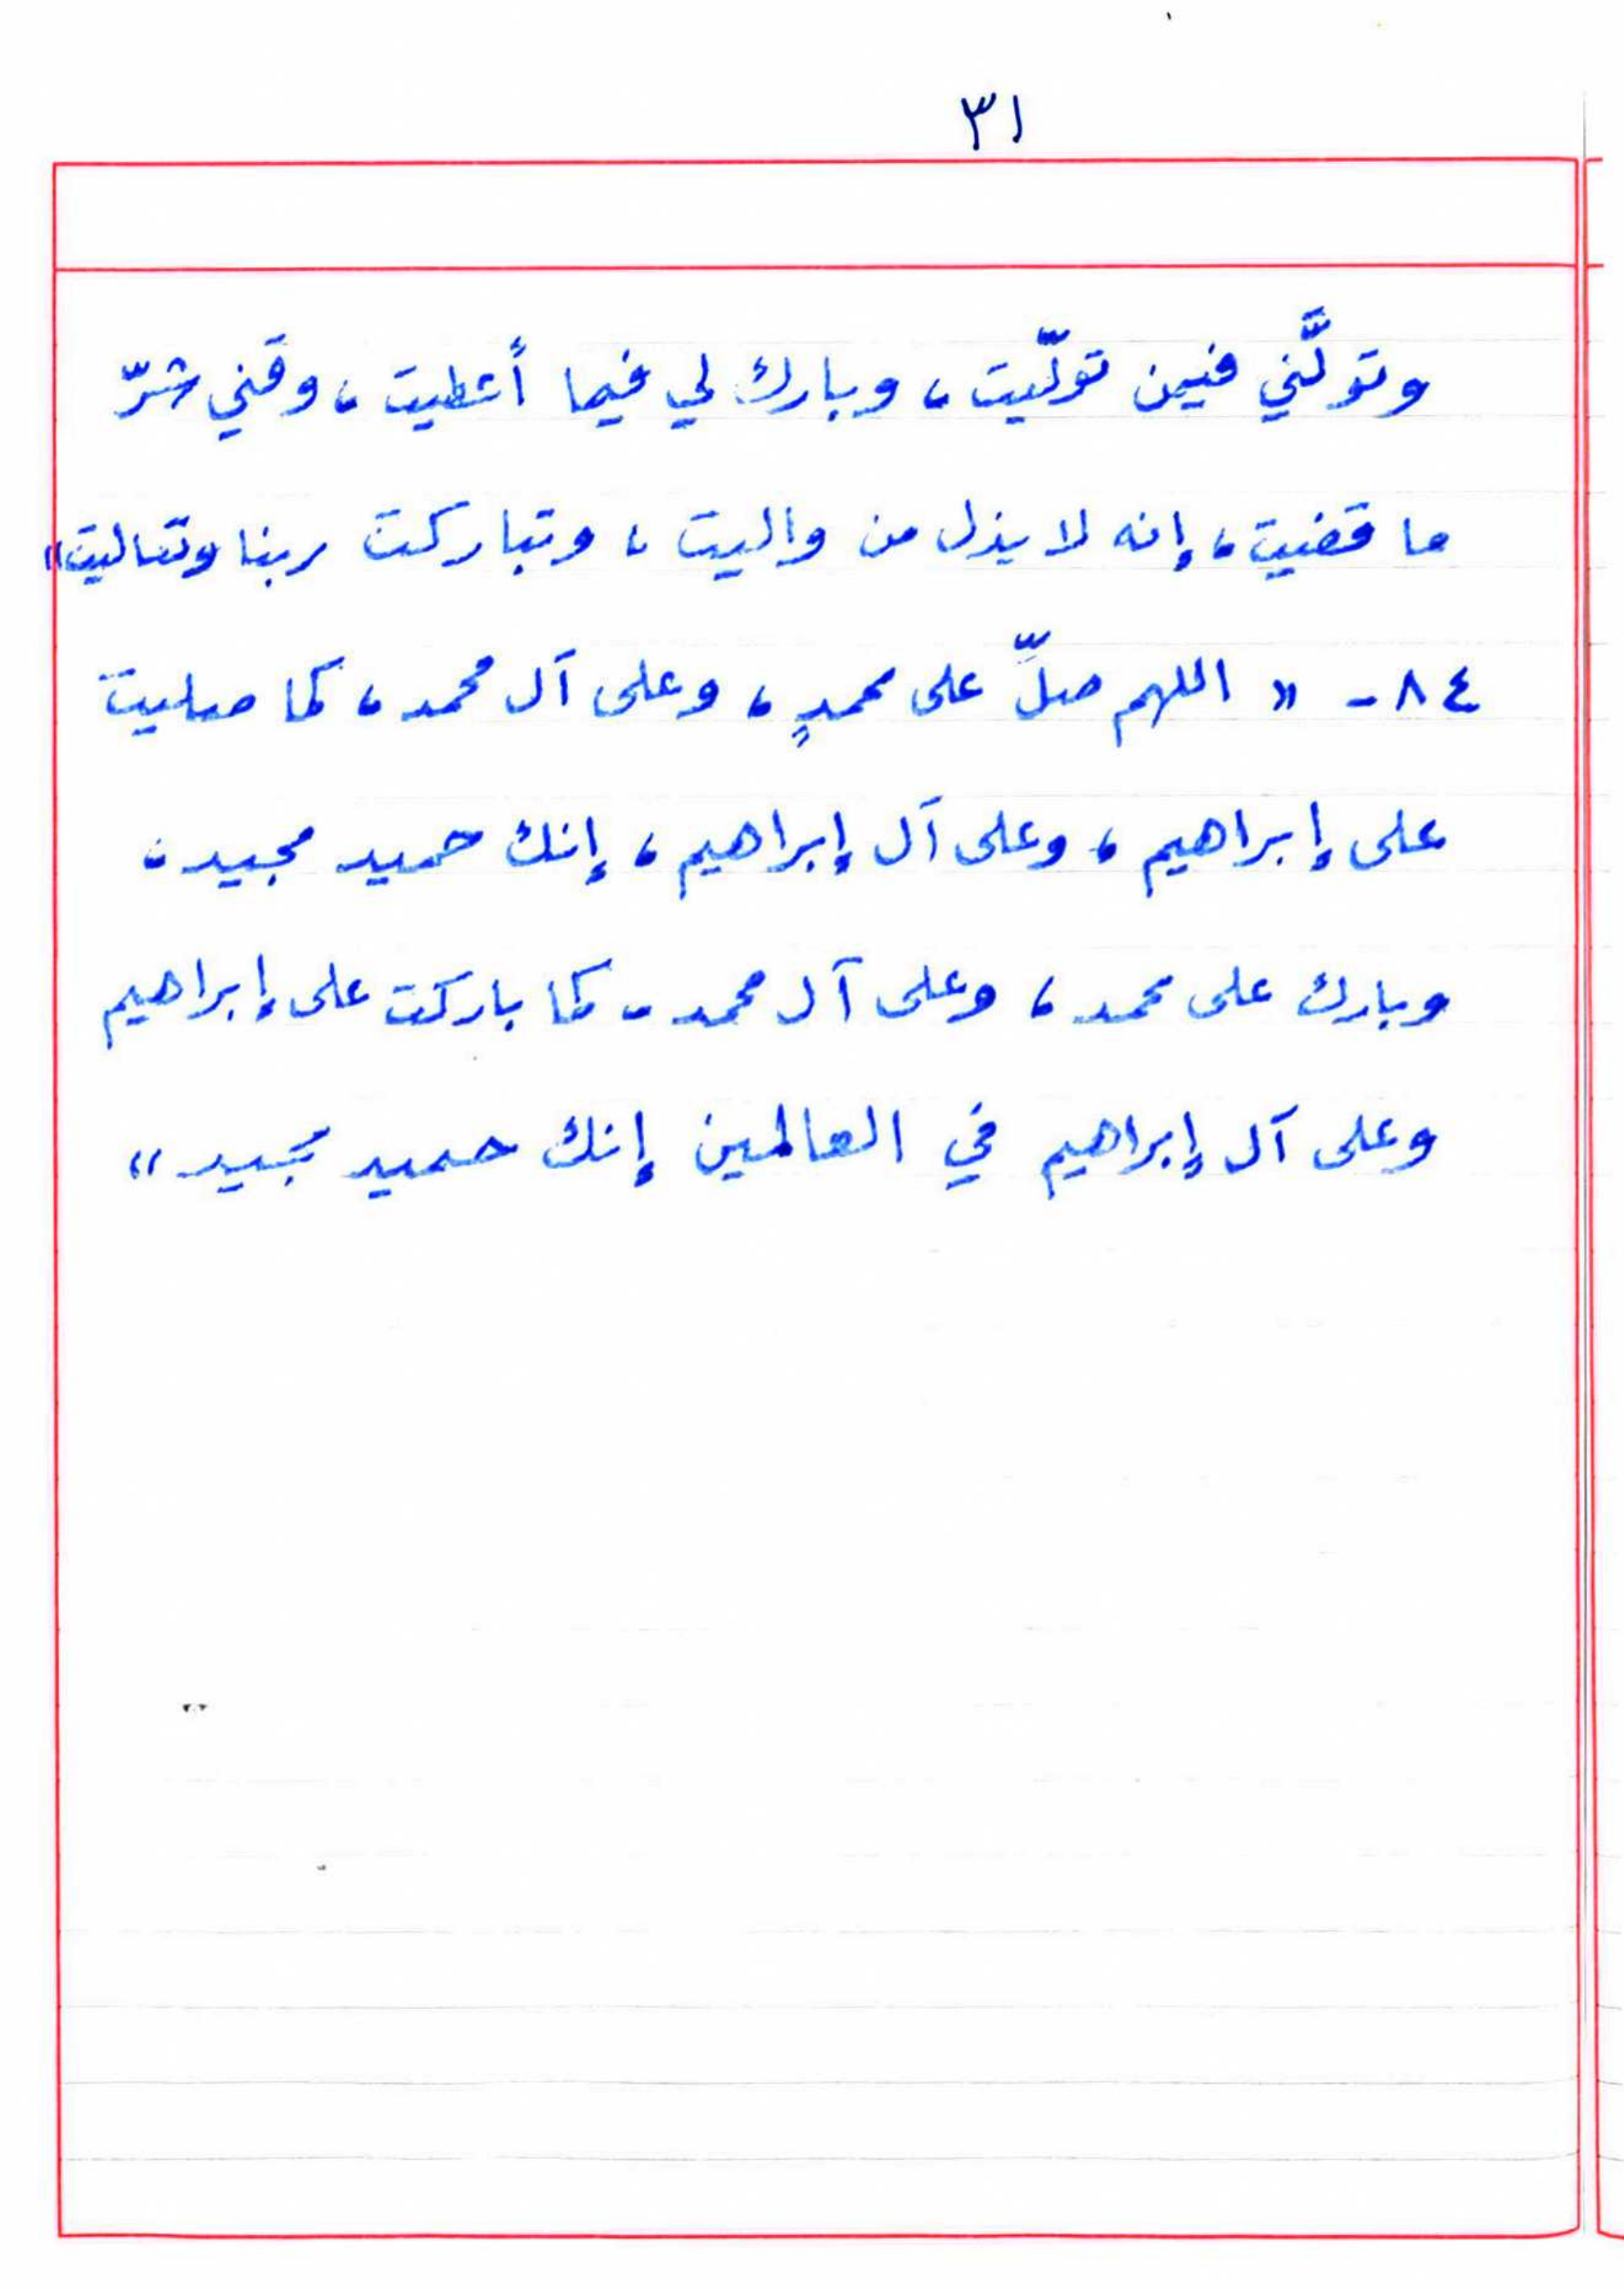 ٣١
وتولَّني فيمن تولّيت، وبارك لي فيما أعطيت، وقني شرّ
ما قضيت، إنه لا يذل من واليت، وتباركت ربنا وتعاليت»
٨٤- « اللهم صلِّ على محمدٍ، وعلى آل محمد، كما صليت
على إبراهيم، وعلى آل إبراهيم، إنك حميد مجيد،
وبارك على محمد، وعلى آل محمد، كما باركت على إبراهيم
وعلى آل إبراهيم في العالمين إنك حميد مجيد»